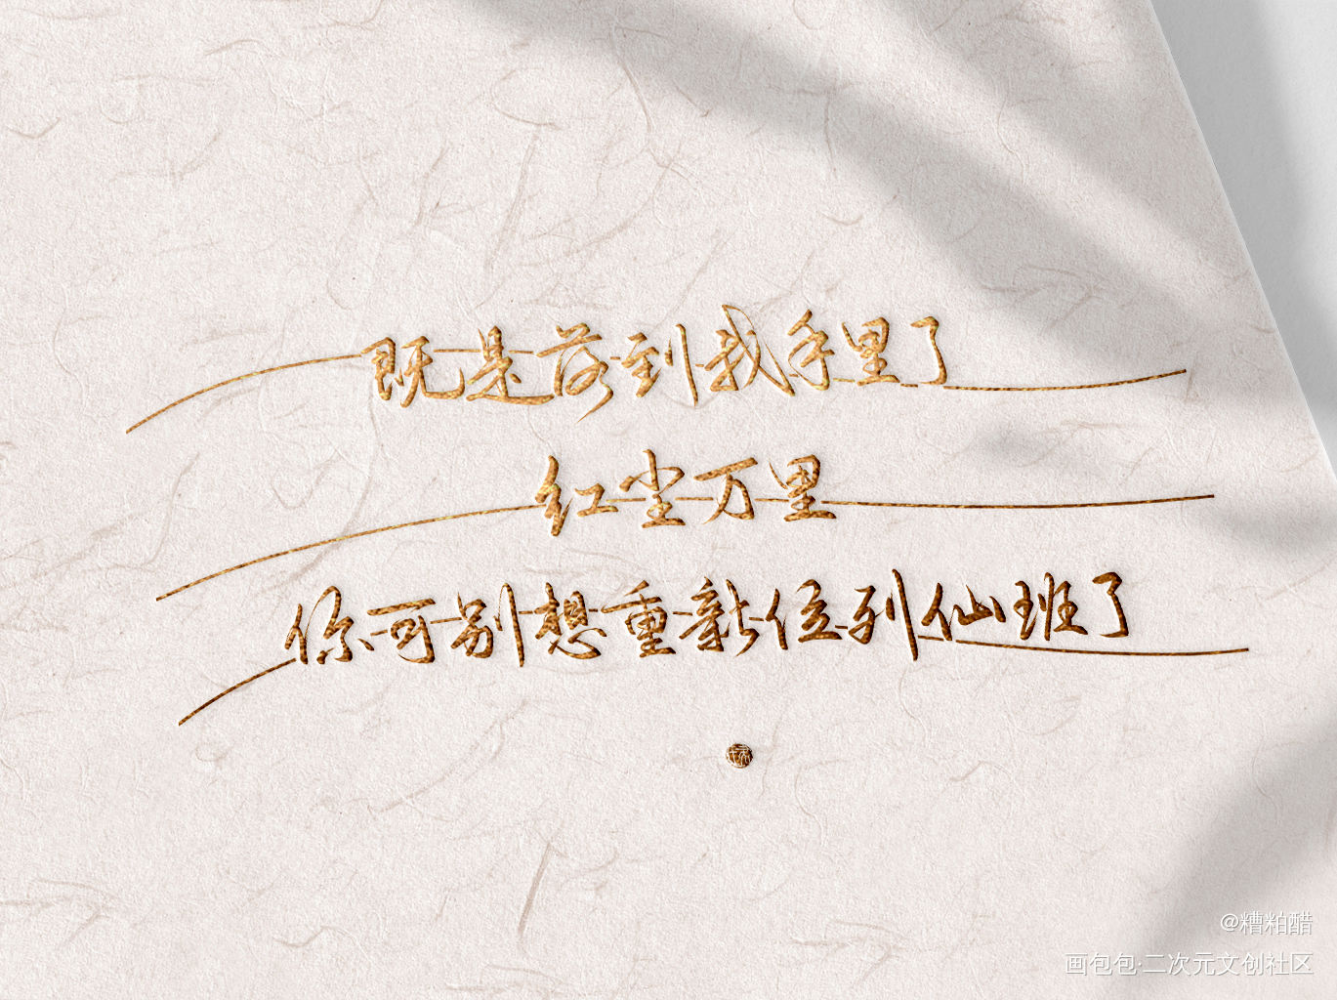 既是落到我手里了
红尘万里
你可别想重新位列仙班了
@糟粕醋
画包包·二次元文创社区